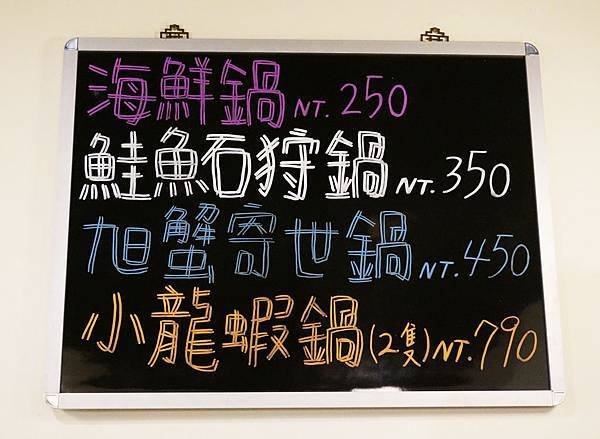 海鮮鍋 NT. 250
鮭魚石狩鍋 NT. 350
旭蟹寄世鍋 NT. 450
小龍蝦鍋(2隻) NT. 790